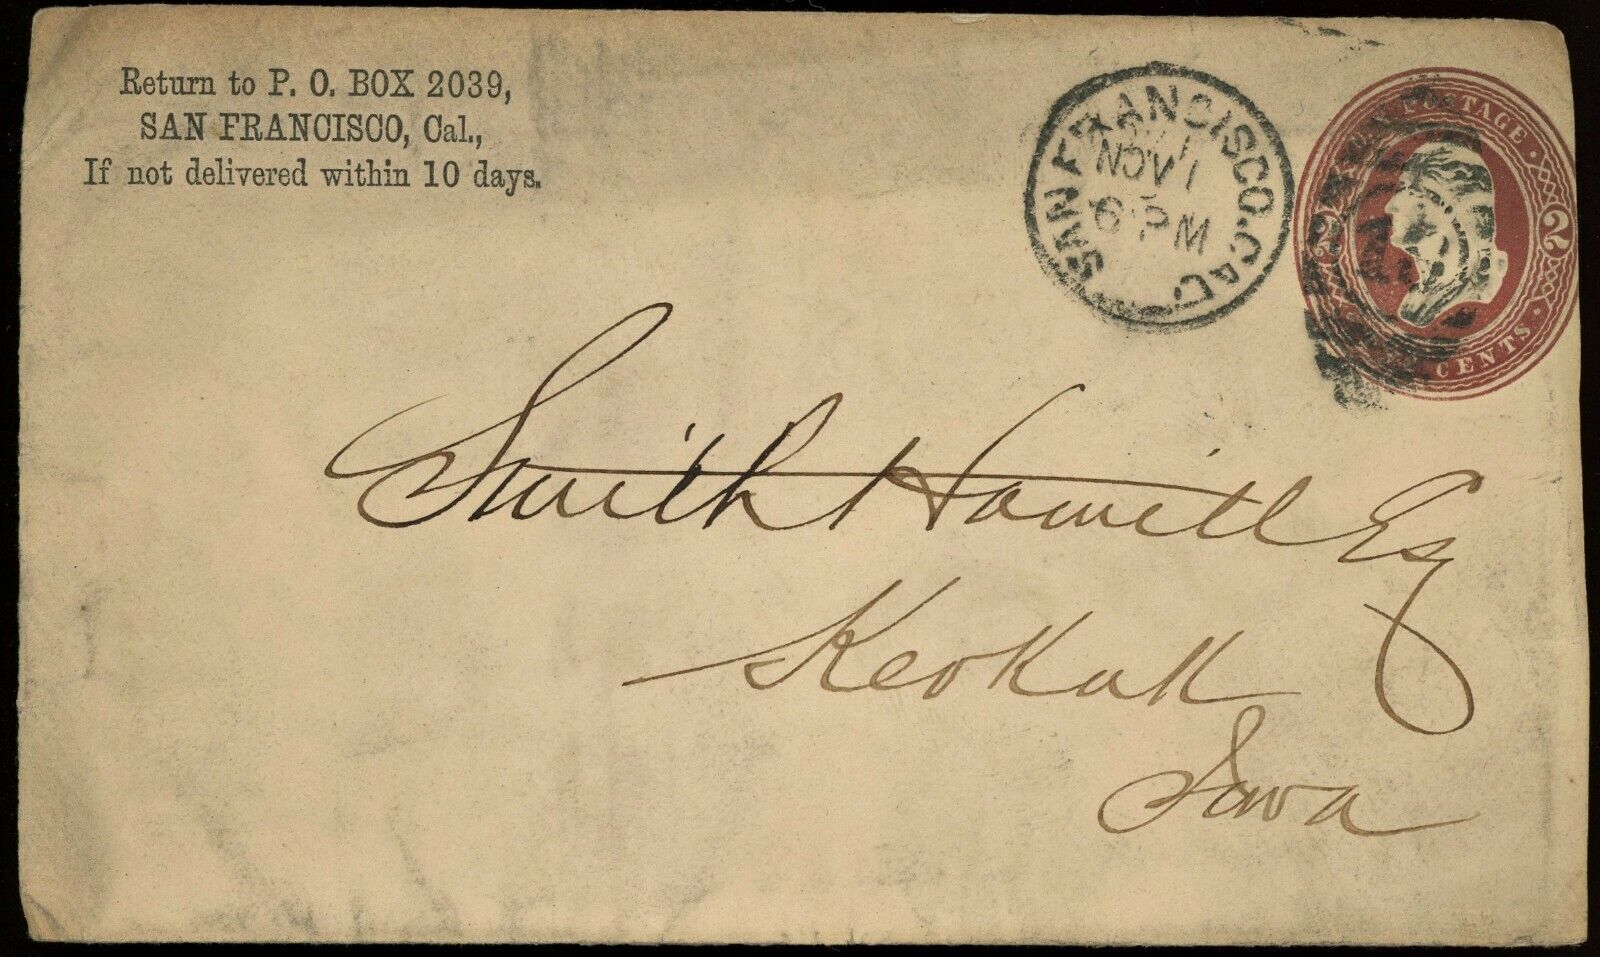 Return to P. O. BOX 2039,
SAN FRANCISCO, Cal.,
If not delivered within 10 days.
SAN FRANCISCO, CAL.
NOV 1
6 PM
POSTAGE
2 2
CENTS
Smith Hamill Esq
Keokuk
Iowa